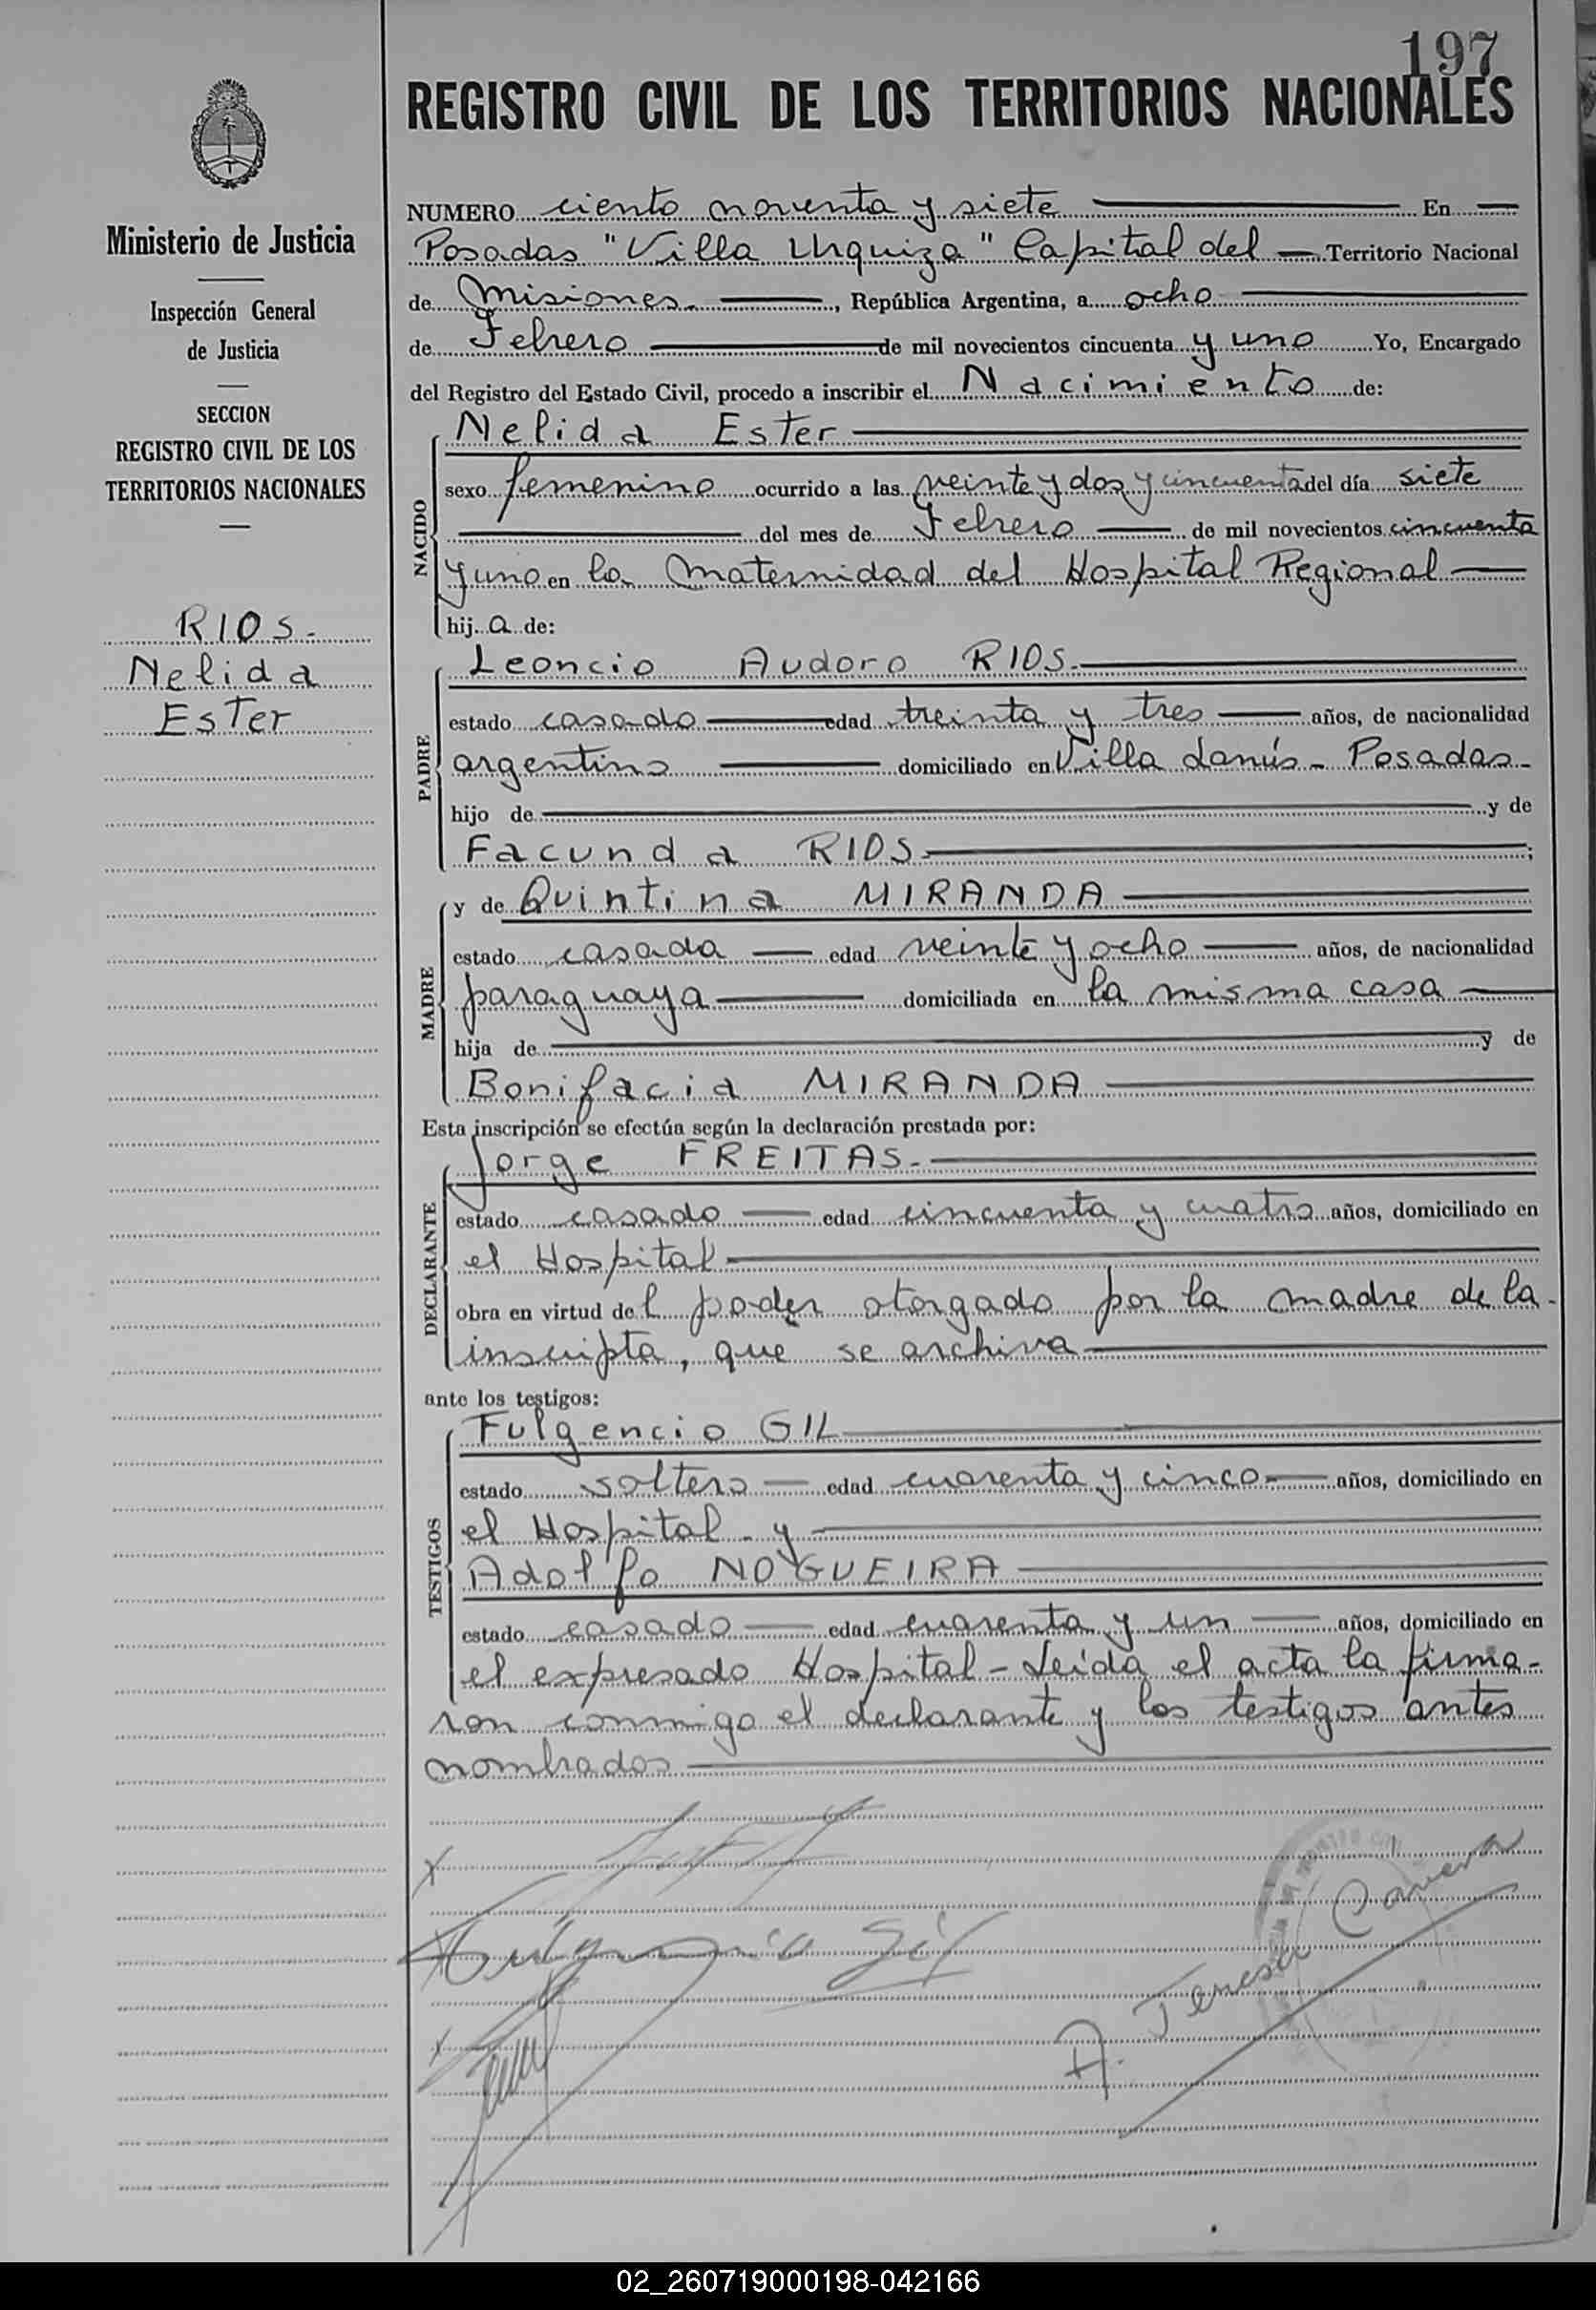 197
REGISTRO CIVIL DE LOS TERRITORIOS NACIONALES
Ministerio de Justicia
Inspección General
de Justicia
SECCION
REGISTRO CIVIL DE LOS
TERRITORIOS NACIONALES
RIOS.
Nelida
Ester
NUMERO ciento noventa y siete En
Posadas "Villa Urquiza" Capital del Territorio Nacional
de Misiones, República Argentina, a ocho
de Febrero de mil novecientos cincuenta y uno Yo, Encargado
del Registro del Estado Civil, procedo a inscribir el Nacimiento de:
NACIDO
Nelida Ester
sexo femenino ocurrido a las veinte y dos y cincuenta del día siete
del mes de Febrero de mil novecientos cincuenta
y uno en la Maternidad del Hospital Regional
hija de:
PADRE
Leoncio Audoro RIOS.
estado casado edad treinta y tres años, de nacionalidad
argentino domiciliado en Villa Lanús - Posadas-
hijo de y de
Facunda RIOS ;
MADRE
y de Quintina MIRANDA
estado casada edad veinte y ocho años, de nacionalidad
paraguaya domiciliada en la misma casa
hija de y de
Bonifacia MIRANDA
Esta inscripción se efectúa según la declaración prestada por:
DECLARANTE
Jorge FREITAS.
estado casado edad cincuenta y cuatro años, domiciliado en
el Hospital
obra en virtud del poder otorgado por la madre de la
inscripta, que se archiva
ante los testigos:
TESTIGOS
Fulgencio GIL
estado soltero edad cuarenta y cinco años, domiciliado en
el Hospital y
Adolfo NOGUEIRA
estado casado edad cuarenta y un años, domiciliado en
el expresado Hospital - Leida el acta la firma-
ron conmigo el declarante y los testigos antes
nombrados
Fulgencio Gil
A. Teresa
02_260719000198-042166